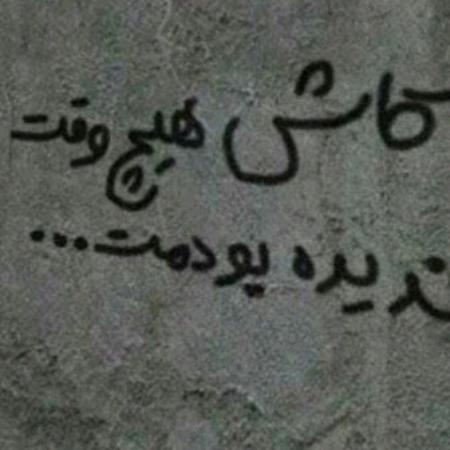 کاش هیچ وقت
ندیده بودمت...